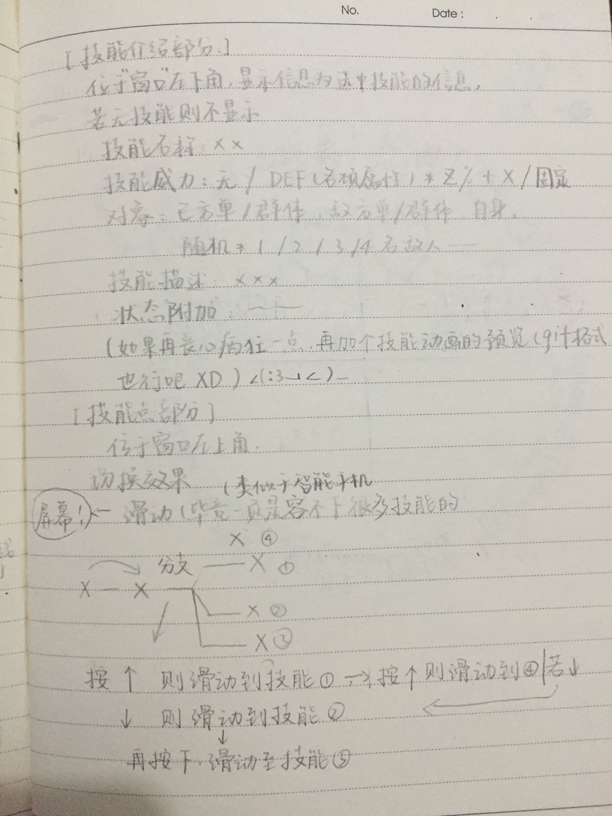 No.
Date :
[技能介绍部分.]
位于窗口左下角,显示信息为选中技能的信息,
若无技能则不显示
技能名称: x x
技能威力: 无 / DEF (各项属性) * Z% + X / 固定
对象: 己方单/群体, 敌方单/群体, 自身,
随机 * 1 / 2 / 3 / 4 名敌人
技能描述: x x x
状态附加:
(如果再丧心病狂一点,再加个技能动画的预览 (gif格式
也行吧 XD) _(:3」∠)_
[技能点部分]
位于窗口左上角.
切换效果 (类似于智能手机
屏幕!) ← 滑动 (毕竟一页是容不下很多技能的
X ④
X — X 分支 X ①
X ②
X ③
按 ↑ 则滑动到技能① → 按↑则滑动到④ | 若↓
↓ 则滑动到技能②
↓
再按下,滑动至技能③